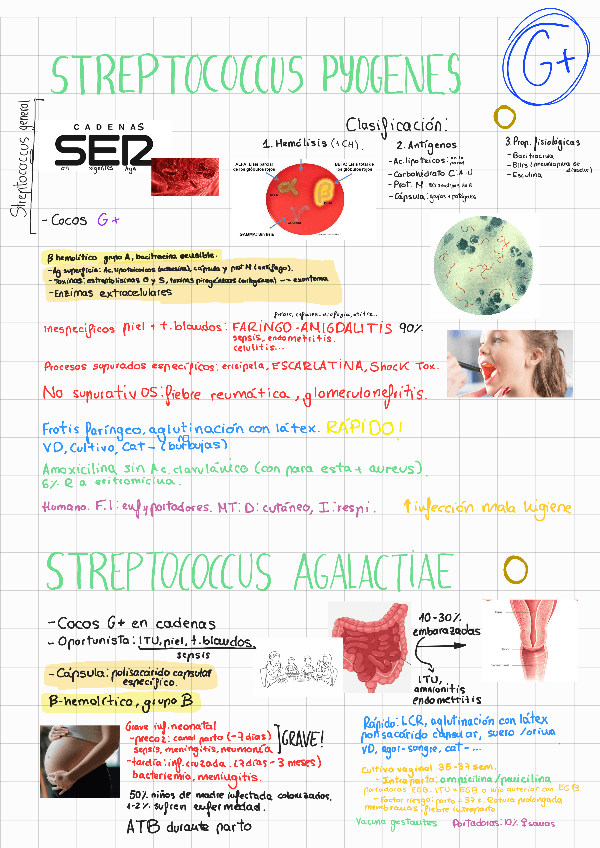 STREPTOCOCCUS PYOGENES
G+
Streptococcus general
CADENAS
SER
- Cocos G+
Clasificación:
1. Hemólisis (A.CH).
2. Antígenos
- Ac. lipoteicos: en la pared
- Carbohidrato C: A-U
- Prot. M
- Cápsula: grupos + patógeno
3. Prop. fisiológicas
- Bacitracina
- Bilis
- Esculina
β hemolítico grupo A, bacitracina sensible.
- Ag superficie: Ac. lipoteicoicos (adhesina), cápsula y prot M (antifago).
- Toxinas: estreptolisinas O y S, toxinas pirogénicas → exantema
- Enzimas extracelulares
Inespecíficos piel + t. blandos: FARINGO-AMIGDALITIS 90%
sepsis, endometritis.
celulitis...
Procesos supurados específicos: erisipela, ESCARLATINA, Shock Tox.
No supurativOS: fiebre reumática, glomerulonefritis.
Frotis faríngeo, aglutinación con látex. RÁPIDO!
VD, cultivo, Cat - (no burbujas)
Amoxicilina sin Ac. clavulánico (con para esta + aureus).
6% R a eritromicina.
Humano. F.I: enf y portadores. MT: D: cutáneo, I: respi. ↑ infección mala higiene
STREPTOCOCCUS AGALACTIAE
- Cocos G+ en cadenas
- Oportunista: ITU, piel, t. blandos,
sepsis
- Cápsula: polisacárido capsular
específico.
β-hemolítico, grupo B
10-30%
embarazadas
ITU,
amnionitis
endometritis
Grave inf. neonatal
- precoz: canal parto (-7 días)
sepsis, meningitis, neumonía
- tardía: inf. cruzada. (7 días - 3 meses)
bacteriemia, meningitis.
GRAVE!
50% niños de madre infectada colonizados.
1-2% sufren enfermedad.
ATB durante parto
Rápido: LCR, aglutinación con látex
polisacárido capsular, suero / orina
VD, agar-sangre, cat - ...
Cultivo vaginal 35-37 sem.
- Intraparto: ampicilina/penicilina
portadoras EGB. ITU x EGB o niño anterior con EGB
- Factor riesgo: parto < 37 s. Rotura prolongada
membranas. fiebre intraparto
Vacuna gestantes
Portadoras: 10% ♀ sanas